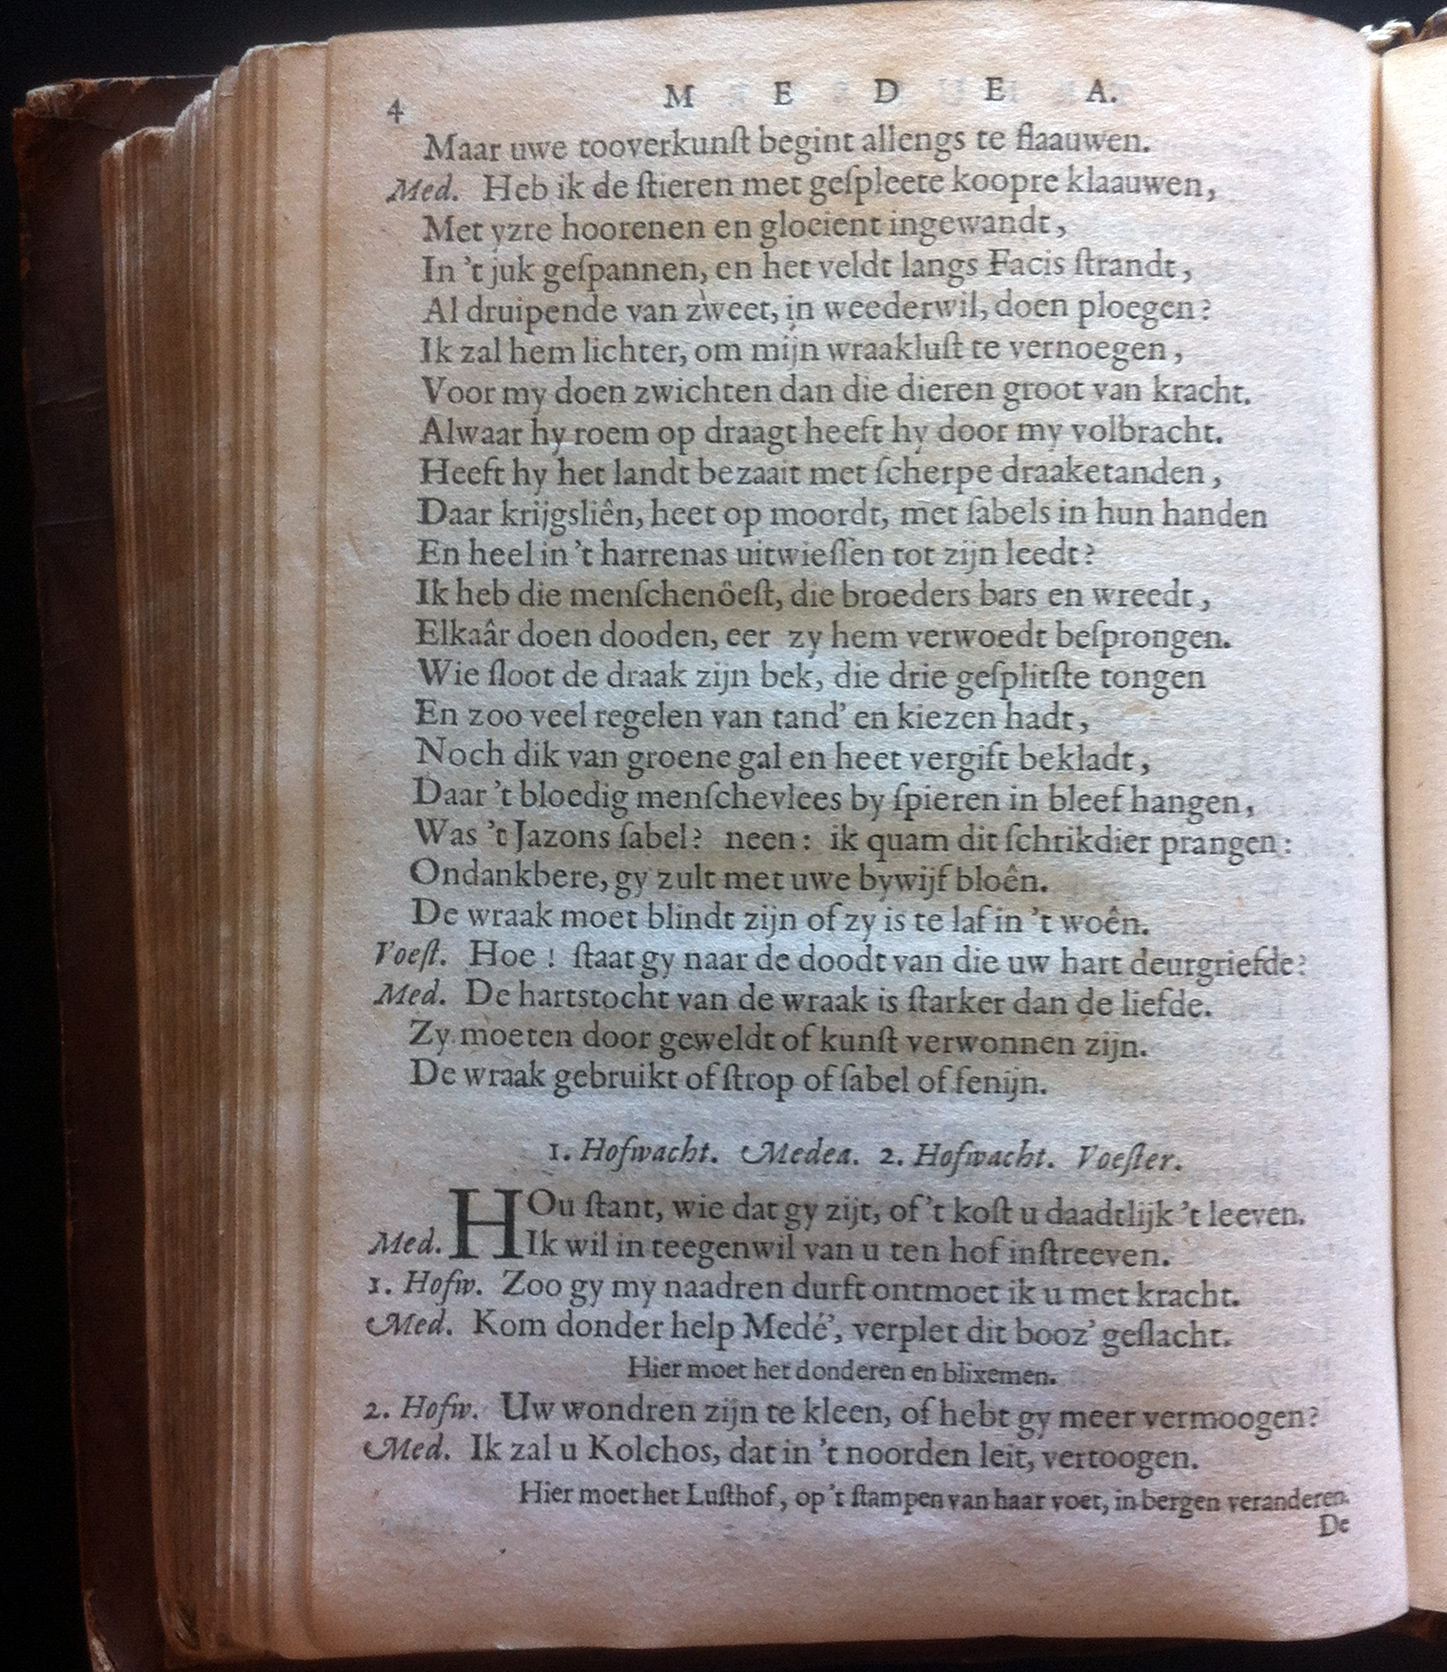 4 M E D E A.
Maar uwe tooverkunſt begint allengs te flaauwen.
Med. Heb ik de ſtieren met geſpleete koopre klaauwen,
Met yzre hoorenen en gloeient ingewandt,
In 't juk geſpannen, en het veldt langs Facis ſtrandt,
Al druipende van zweet, in weederwil, doen ploegen?
Ik zal hem lichter, om mijn wraakluſt te vernoegen,
Voor my doen zwichten dan die dieren groot van kracht.
Alwaar hy roem op draagt heeft hy door my volbracht.
Heeft hy het landt bezaait met ſcherpe draaketanden,
Daar krijgsliên, heet op moordt, met ſabels in hun handen
En heel in 't harrenas uitwieſſen tot zijn leedt?
Ik heb die menſchenôeſt, die broeders bars en wreedt,
Elkaâr doen dooden, eer zy hem verwoedt beſprongen.
Wie ſloot de draak zijn bek, die drie geſplitſte tongen
En zoo veel regelen van tand' en kiezen hadt,
Noch dik van groene gal en heet vergift bekladt,
Daar 't bloedig menſchevlees by ſpieren in bleef hangen,
Was 't Jazons ſabel? neen: ik quam dit ſchrikdier prangen:
Ondankbere, gy zult met uwe bywijf bloên.
De wraak moet blindt zijn of zy is te laf in 't woên.
Voeſt. Hoe! ſtaat gy naar de doodt van die uw hart deurgriefde?
Med. De hartstocht van de wraak is ſtarker dan de liefde.
Zy moeten door geweldt of kunſt verwonnen zijn.
De wraak gebruikt of ſtrop of ſabel of fenijn.
1. Hofwacht. Medea. 2. Hofwacht. Voeſter.
HOu ſtant, wie dat gy zijt, of 't koſt u daadtlijk 't leeven.
Med. Ik wil in teegenwil van u ten hof inſtreeven.
1. Hofw. Zoo gy my naadren durft ontmoet ik u met kracht.
Med. Kom donder help Medé', verplet dit booz' geſlacht.
Hier moet het donderen en blixemen.
2. Hofw. Uw wondren zijn te kleen, of hebt gy meer vermoogen?
Med. Ik zal u Kolchos, dat in 't noorden leit, vertoogen.
Hier moet het Luſthof, op 't ſtampen van haar voet, in bergen veranderen.
De